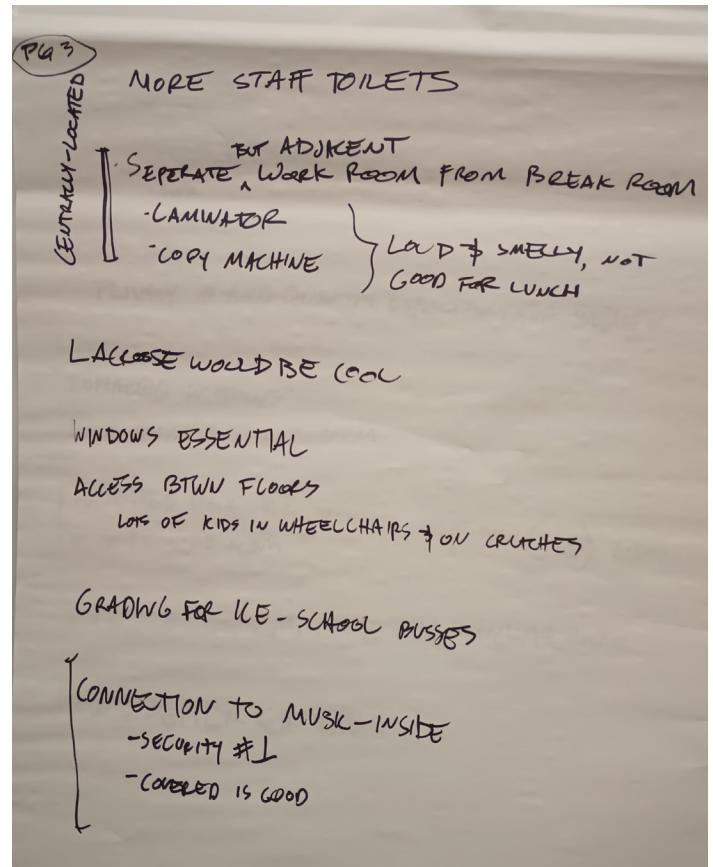 PG 3
CENTRALLY-LOCATED
MORE STAFF TOILETS
BUT ADJACENT
· SEPERATE ^ WORK ROOM FROM BREAK ROOM
· LAMINATOR
· COPY MACHINE
LOUD & SMELLY, NOT
GOOD FOR LUNCH
LACROSSE WOULD BE COOL
WINDOWS ESSENTIAL
ACCESS BTWN FLOORS
LOTS OF KIDS IN WHEELCHAIRS & ON CRUTCHES
GRADING FOR ICE - SCHOOL BUSSES
CONNECTION TO MUSIC - INSIDE
- SECURITY #1
- COVERED IS GOOD